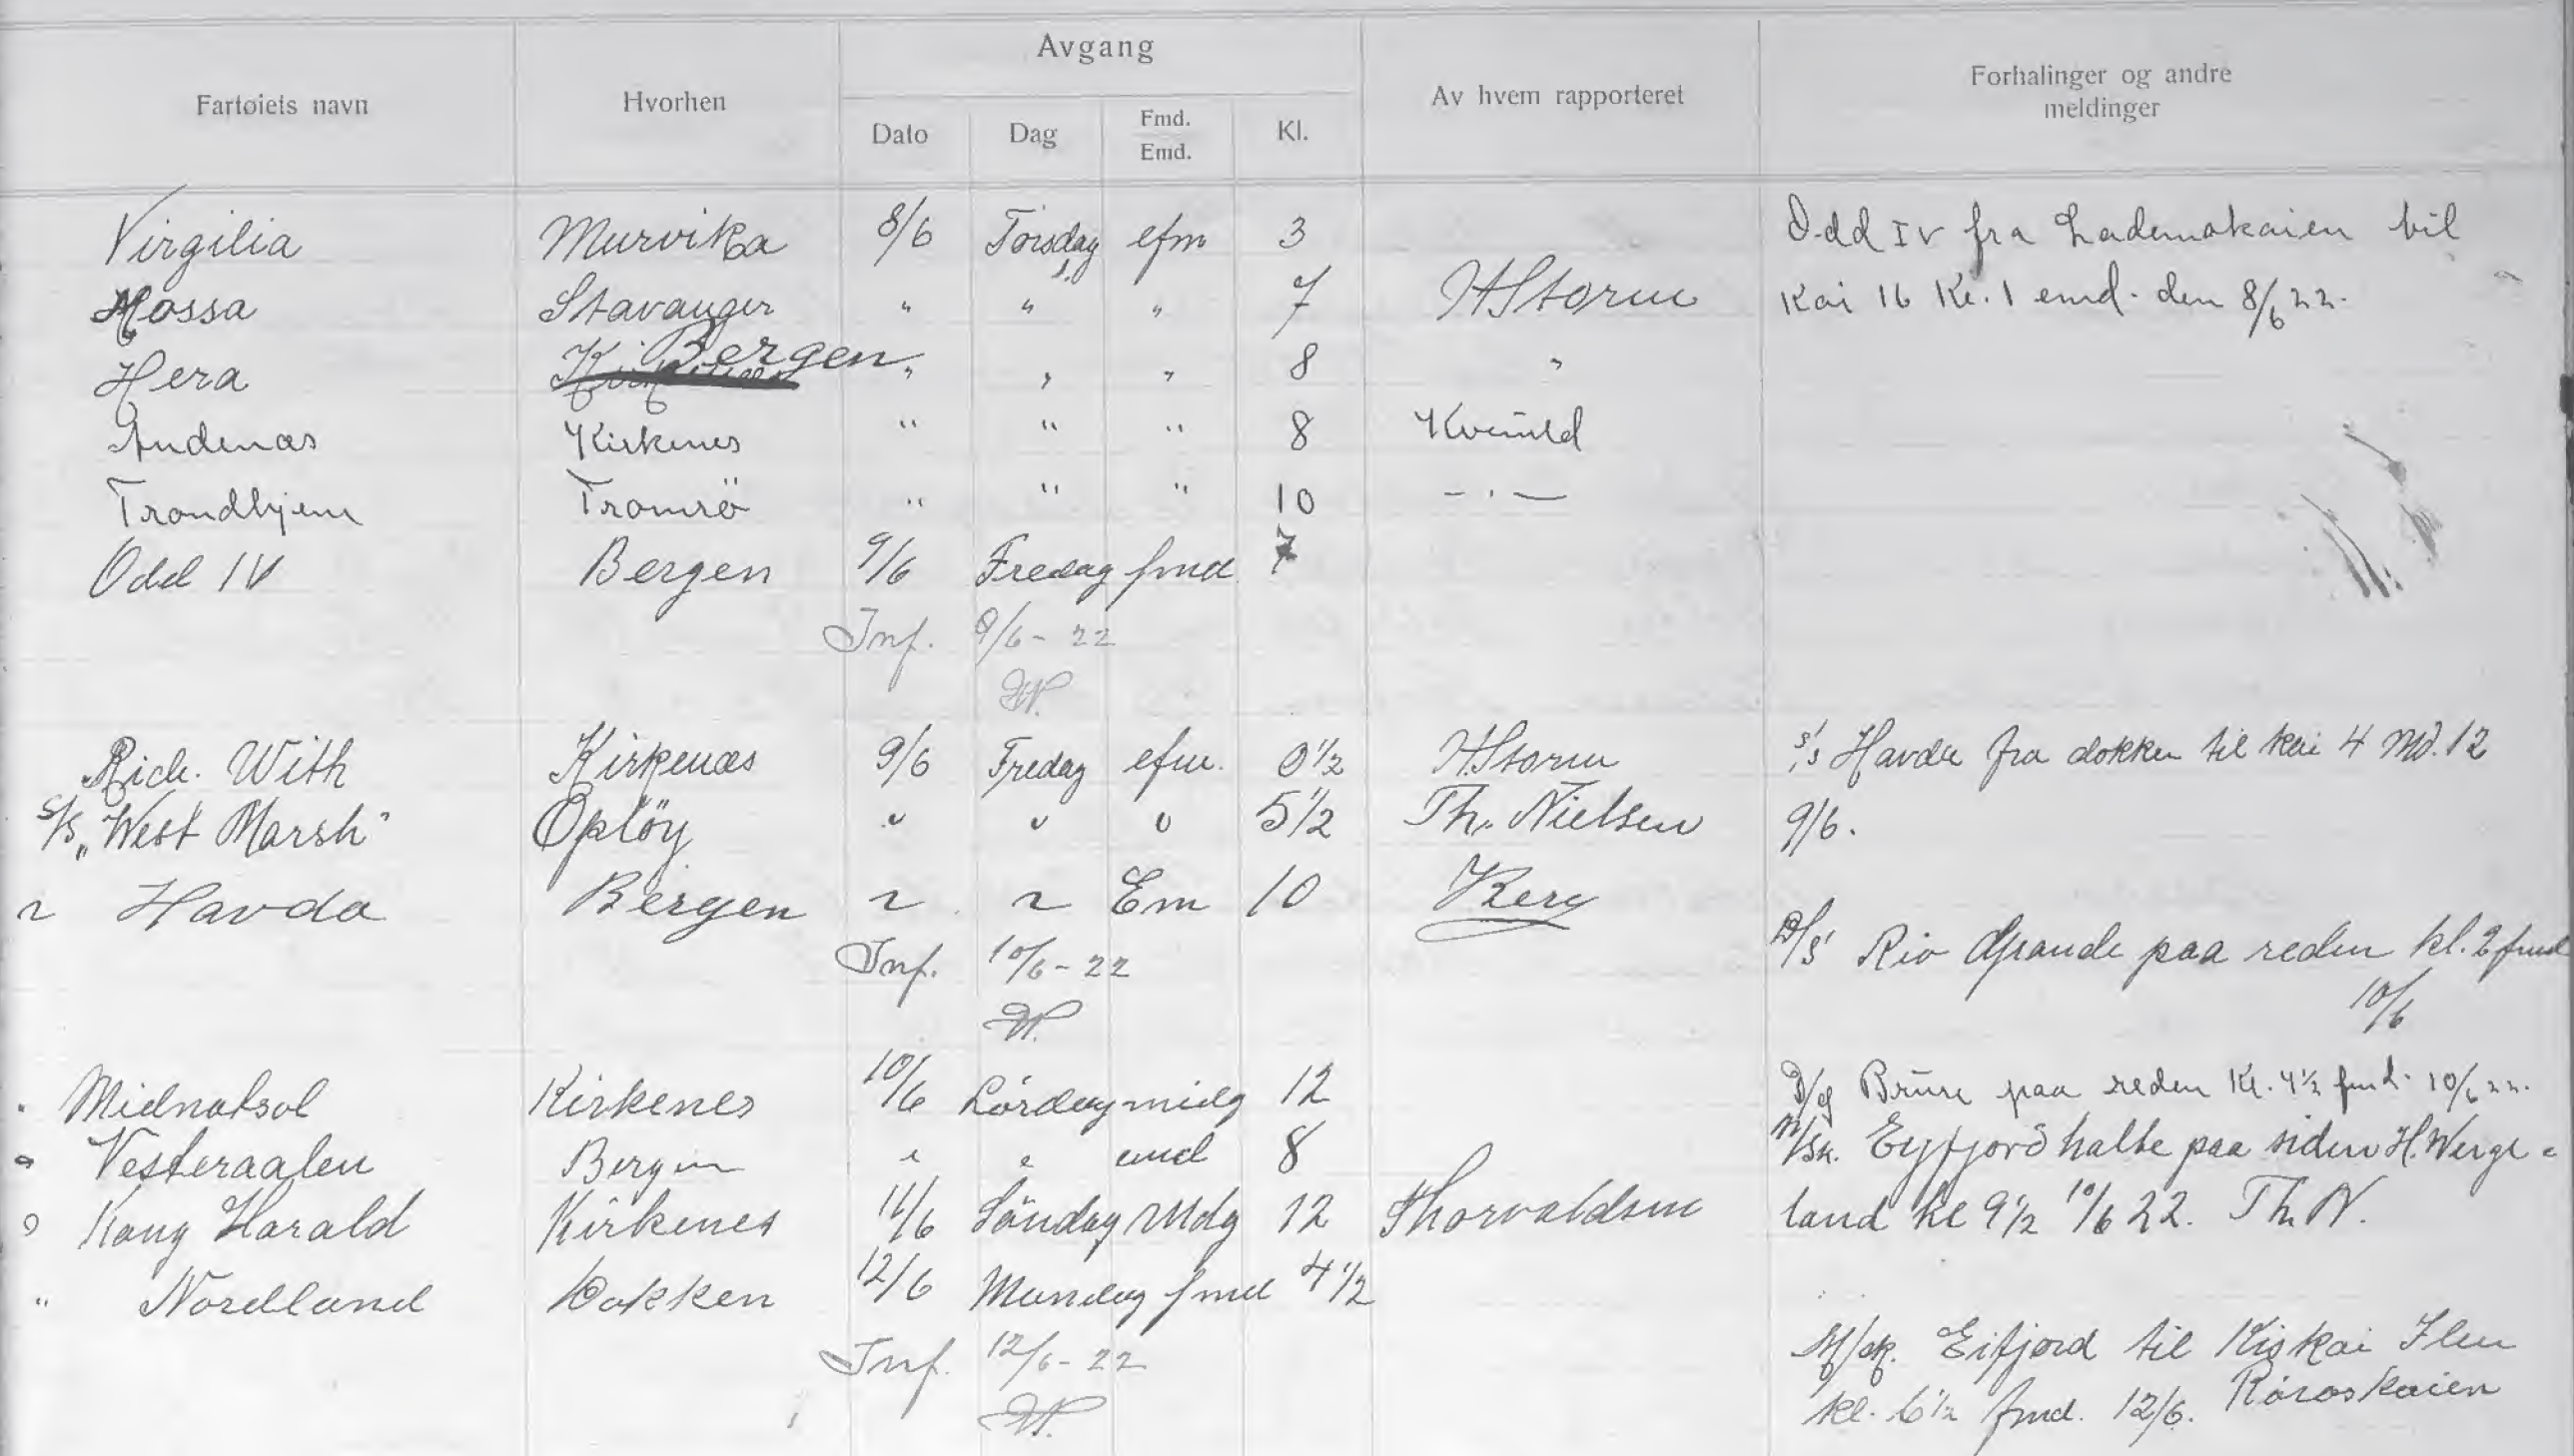 Avgang
Fartøiets navn Hvorhen Dato Dag Fmd. Emd. Kl. Av hvem rapporteret Forhalinger og andre meldinger
Virgilia Murvika 8/6 Torsdag efm 3 Odd IV fra Lademokaien til
Mossa Stavanger " " " 7 HStorm Kai 16 Kl. 1 emd. den 8/6 22.
Hera Bergen " " " 8 "
Andenæs Kirkenes " " " 8
Trondhjem Tromsö " " " 10 - " -
Odd IV Bergen 9/6 Fredag fmd 7
Inf. 9/6 - 22
Rich. With Kirkenæs 9/6 Fredag efm. 0 1/2 HStorm s/s Havda fra dokken til kai 4 Md. 12
S/S "West Marsh" Oplöy " " " 5 1/2 Th. Nielsen 9/6.
" Havda Bergen " " Em 10 Berg
D/S Rio Grande paa reden kl. 2 fmd
Inf. 10/6 - 22
10/6
" Midnatsol Kirkenes 10/6 Lördag midg 12 D/S Bruse paa reden Kl. 4 1/2 fmd. 10/6 22.
" Vesteraalen Bergen " " emd 8 M/Sk. Eyfjord halte paa siden H. Werge =
" Kong Harald Kirkenes 11/6 Söndag Mdg 12 Thorvaldsen land kl 9 1/2 10/6 22. Th. N.
" Nordland Dokken 12/6 Mandag fmd 4 1/2
Inf. 12/6 - 22 M/sk. Eifjord til Kiskai Ilen
kl. 6 1/2 fmd. 12/6. Röroskaien